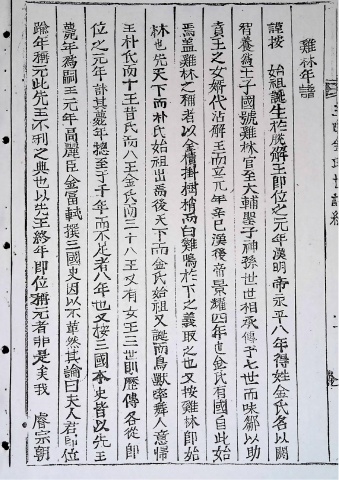 雞林年譜
謹按 始祖誕生於脫解王即位之元年漢明帝永平八年得姓金氏名以閼
智養爲王子國號雞林官至大輔聖子神孫世世相承傳于七世而味鄒以助
賁王之女婿代沾解王而立元年辛巳漢後帝景耀四年也金氏有國自此始
焉盖雞林之稱者以金樻掛樹梢而白雞鳴於下之義取之也又按雞林即始
林也先天下而朴氏始祖出焉後天下而金氏始祖又誕而鳥獸率舞人意歸
王朴氏南十王昔氏南八王金氏南三十八王又有女王三世則歷傳各從即
位之元年計其薨年摠至于千年而不足者八年也又按三國本史皆以先王
薨年爲嗣王元年高麗臣金富軾撰三國史因以不革然其論曰夫人君即位
踰年稱元此先王不刋之典也以先王終年即位稱元者非是矣我 睿宗朝